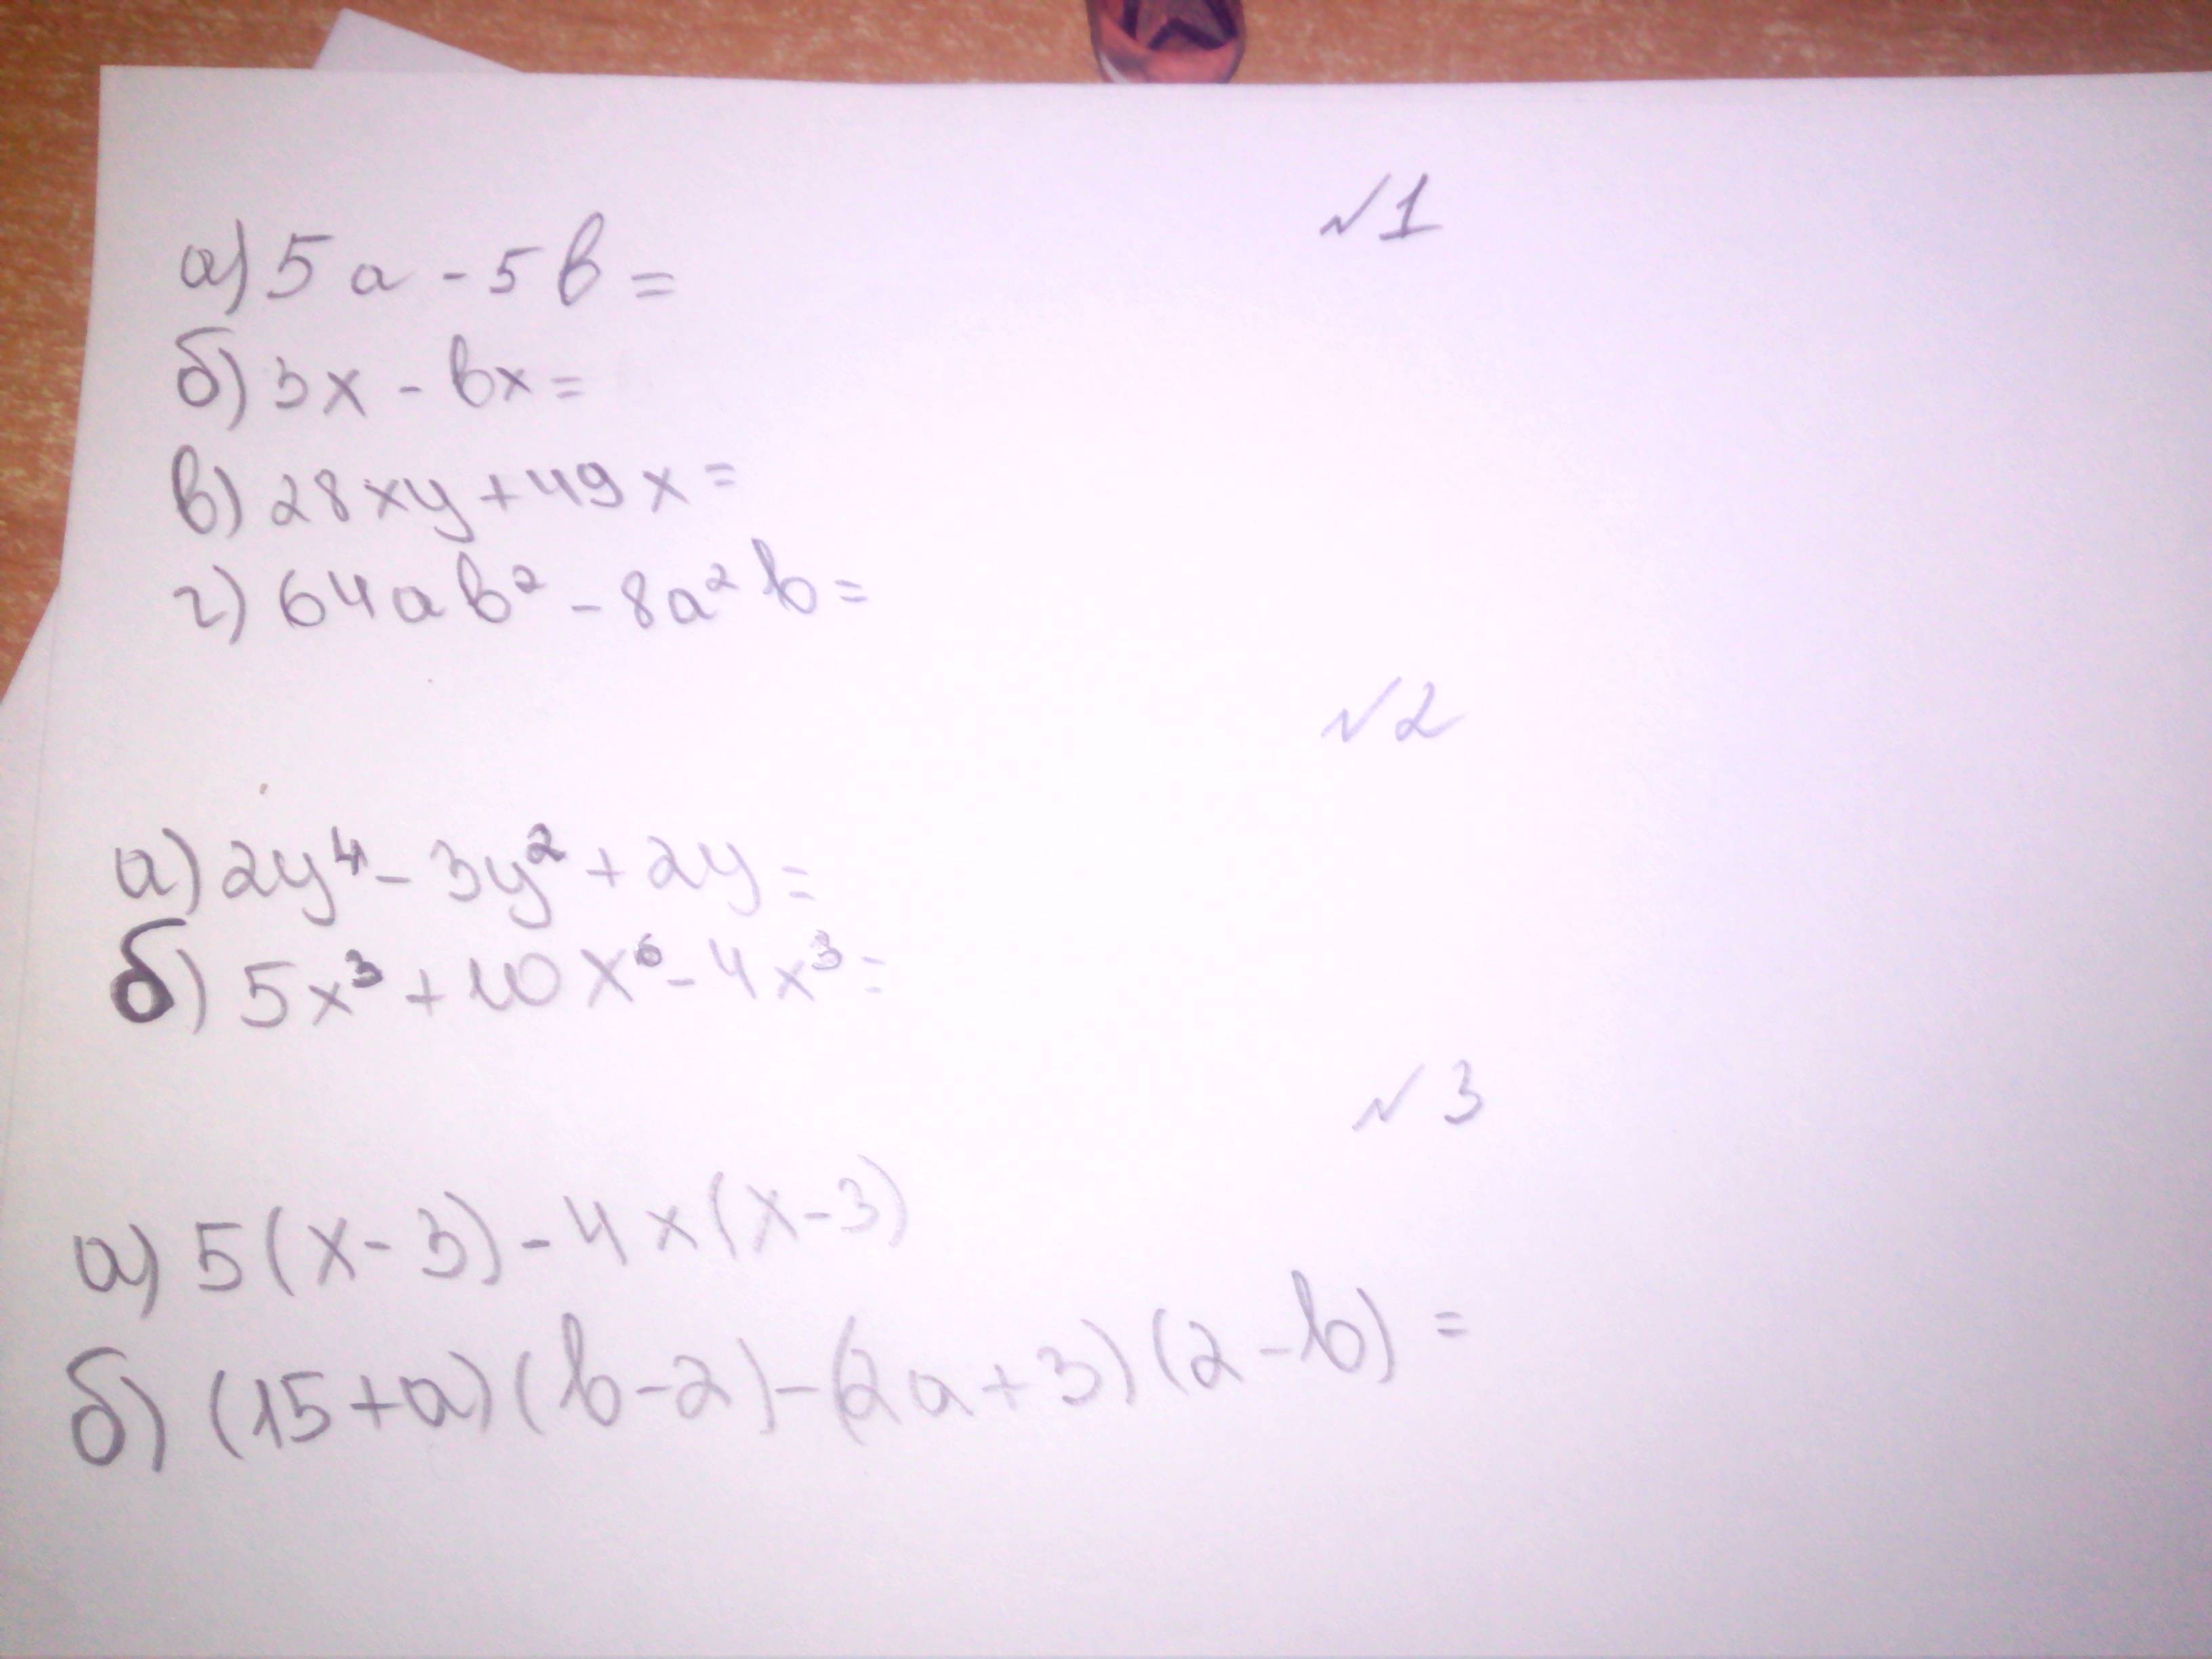 №1
а) 5a - 5b =
б) 3x - bx =
в) 28xy + 49x =
г) 64ab² - 8a²b =
№2
а) 2y⁴ - 3y² + 2y =
б) 5x³ + 10x⁶ - 4x³ =
№3
а) 5(x - 3) - 4x(x - 3)
б) (15 + a)(b - 2) - (2a + 3)(2 - b) =